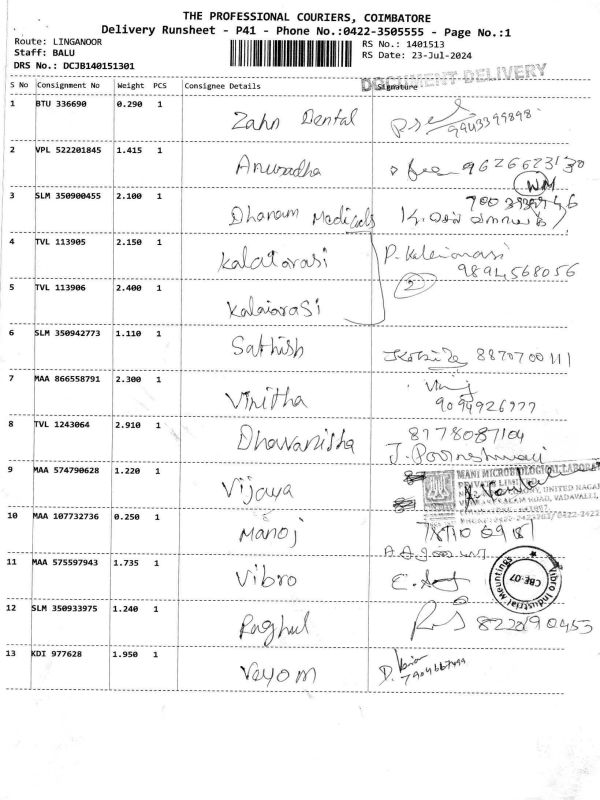 THE PROFESSIONAL COURIERS, COIMBATORE
Delivery Runsheet - P41 - Phone No.:0422-3505555 - Page No.:1
Route: LINGANOOR
RS No.: 1401513
Staff: BALU
RS Date: 23-Jul-2024
DRS No.: DCJB140151301
DOCUMENT DELIVERY
S No Consignment No Weight PCS Consignee Details Signature
1 BTU 336690 0.290 1 Zahn Dental 9943399898
2 VPL 522201845 1.415 1 Anuradha 9626623130
WM
3 SLM 350900455 2.100 1 Dhanam Medicals
4 TVL 113905 2.150 1 Kalaiarasi P. Kalaiarasi
9894568056
2
5 TVL 113906 2.400 1 Kalaiarasi
6 SLM 350942773 1.110 1 Sathish 8870700111
7 MAA 866558791 2.300 1 Vinitha
9094926777
8 TVL 1243064 2.910 1 Dhavanisha 8778087104
J. Poornshwari
9 MAA 574790628 1.220 1 Vijaya
MANI MICROBIOLOGICAL LABORA
PRIVATE LIMITED
UNITED NAGAR
ROAD, VADAVALLI,
10 MAA 107732736 0.250 1 Manoj
11 MAA 575597943 1.735 1 Vibro
Vibro Industrial Mountings
CBE-07
12 SLM 350933975 1.240 1 Raghul 8220190453
13 KDI 977628 1.950 1 Veyom